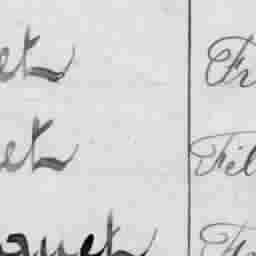 et Fr
et Fil
quet Fr